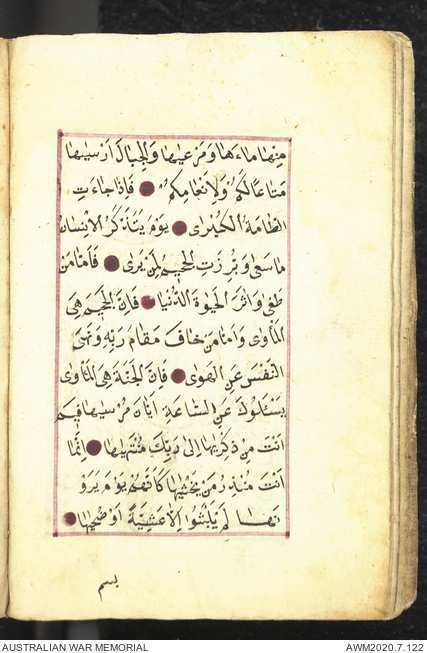 مِنْهَا مَاءَهَا وَمَرْعٰيهَا وَالْجِبَالَ اَرْسٰيهَا
مَتَاعًا لَكُمْ وَلِاَنْعَامِكُمْ فَاِذَا جَاءَتِ
الطَّامَّةُ الْكُبْرٰى يَوْمَ يَتَذَكَّرُ الْاِنْسَانُ
مَا سَعٰى وَبُرِّزَتِ الْجَحِيمُ لِمَنْ يَرٰى فَاَمَّا مَنْ
طَغٰى وَاٰثَرَ الْحَيٰوةَ الدُّنْيَا فَاِنَّ الْجَحِيمَ هِيَ
الْمَأْوٰى وَاَمَّا مَنْ خَافَ مَقَامَ رَبِّهِ وَنَهَى
النَّفْسَ عَنِ الْهَوٰى فَاِنَّ الْجَنَّةَ هِيَ الْمَأْوٰى
يَسْئَلُونَكَ عَنِ السَّاعَةِ اَيَّانَ مُرْسٰيهَا فِيمَ
اَنْتَ مِنْ ذِكْرٰيهَا اِلٰى رَبِّكَ مُنْتَهٰيهَا اِنَّمَا
اَنْتَ مُنْذِرُ مَنْ يَخْشٰيهَا كَاَنَّهُمْ يَوْمَ يَرَوْ
نَهَا لَمْ يَلْبَثُوا اِلَّا عَشِيَّةً اَوْ ضُحٰيهَا
بسم
AUSTRALIAN WAR MEMORIAL AWM2020.7.122